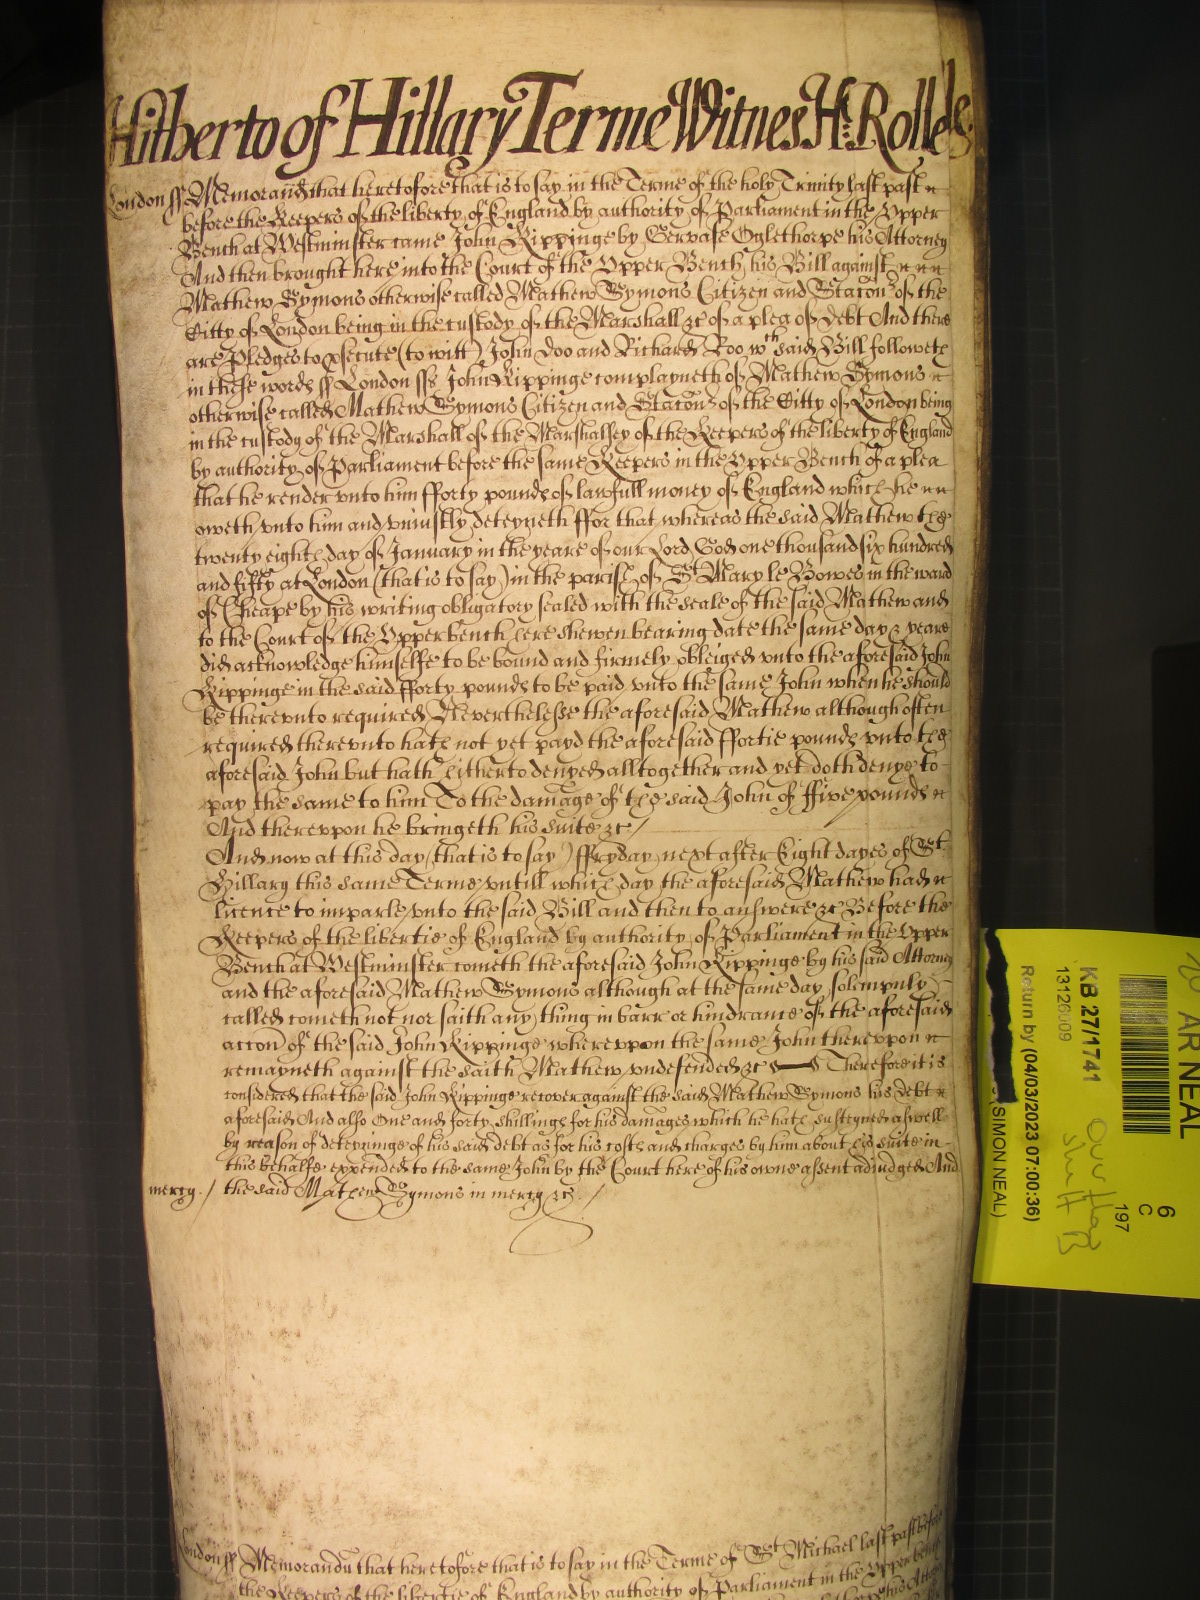 Hitherto of Hillary Terme Witnes H: Rolle
London ss Memorand that heretofore that is to say in the Terme of the holy Trinity last past
before the Keepers of the liberty of England by authority of Parliament in the Vpper
Bench at Westminster came John Kippinge by Gervase Oglethorpe his Attorney
And then brought here into the Court of the Vpper Bench his Bill against
Mathew Symons otherwise called Mathew Symons Citizen and Stacon of the
Citty of London being in the custody of the Marshall &c of a plea of debt And there
are Pledges to psecute (to witt) John Doo and Richard Roo wth said Bill followeth
in these words ss London ss John Kippinge complayneth of Mathew Symons
otherwise called Mathew Symons Citizen and Stacon of the Citty of London being
in the custody of the Marshall of the Marshalsey of the Keepers of the liberty of England
by authority of Parliament before the same Keepers in the Vpper Bench of a plea
that he render vnto him fforty pounds of lawfull money of England which he
oweth vnto him and vniustly deteyneth ffor that whereas the said Mathew the
twenty eighth day of January in the yeare of our Lord God one thousand six hundred
and fifty at London (that is to say) in the parish of St Mary le Bowes in the ward
of Cheape by his writing obligatory sealed with the seale of the said Mathew and
to the Court of the Vpper bench here shewen bearing date the same day & yeare
did acknowledge himselfe to be bound and firmely obleiged vnto the aforesaid John
Kippinge in the said fforty pounds to be paid vnto the same John when he should
be therevnto required Neverthelesse the aforesaid Mathew although often
required therevnto hath not yet payd the aforesaid ffortie pounds vnto the
aforesaid John but hath hitherto denyed alltogether and yet doth denye to
pay the same to him To the damage of the said John of ffive pounds
And therevpon he bringeth his suite &c
And now at this day (that is to say) ffryday next after Eight dayes of St
Hillary this same Terme vntill which day the aforesaid Mathew had
licence to imparle vnto the said Bill and then to answere &c Before the
Keepers of the libertie of England by authority of Parliament in the Vpper
Bench at Westminster cometh the aforesaid John Kippinge by his said Attorney
and the aforesaid Mathew Symons although at the same day solempnly
called cometh not nor saith any thing in barr or hindrance of the aforesaid
accon of the said John Kippinge wherevpon the same John therevpon
remayneth against the saith Mathew vndefended &c Therefore it is
considered that the said John Kippinge recover against the said Mathew Symons his debt
aforesaid And also One and forty shillings for his damages which he hath susteyned aswell
by reason of deteyninge of his said debt as for his costs and charges by him about his suite in
this behalfe expended to the same John by the Court here of his owne assent adiudged And
mercy. the said Mathew Symons in mercy &c
London ss Memorandu that heretofore that is to say in the Terme of St Michael last past before
the Keepers of the libertie of England by authority of Parliament in the Vpper bench
AR NEAL
KB 27/1741
13126009
Return by (04/03/2023 07:00:36)
(SIMON NEAL)
6
C
197